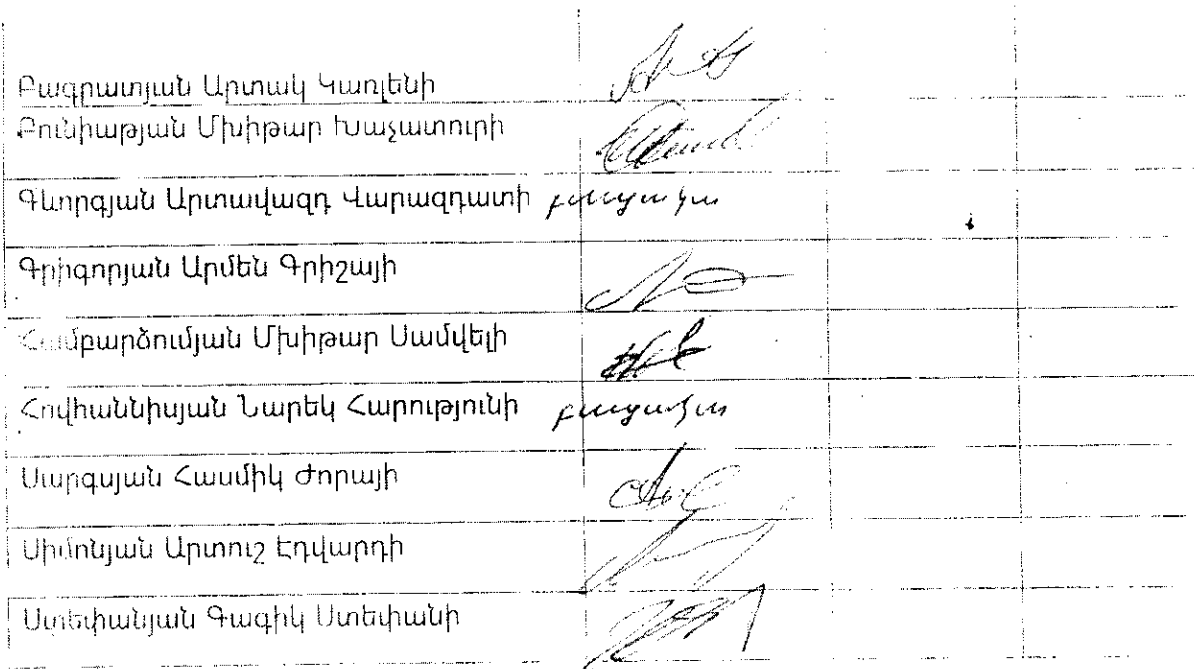 Բագրատյան Արտակ Կառլենի
Բունիաթյան Մխիթար Խաչատուրի
Գևորգյան Արտավազդ Վարազդատի բացակա
Գրիգորյան Արմեն Գրիշայի
Համբարձումյան Մխիթար Սամվելի
Հովհաննիսյան Նարեկ Հարությունի բացակա
Սարգսյան Հասմիկ Ժորայի
Սիմոնյան Արտուշ Էդվարդի
Ստեփանյան Գագիկ Ստեփանի